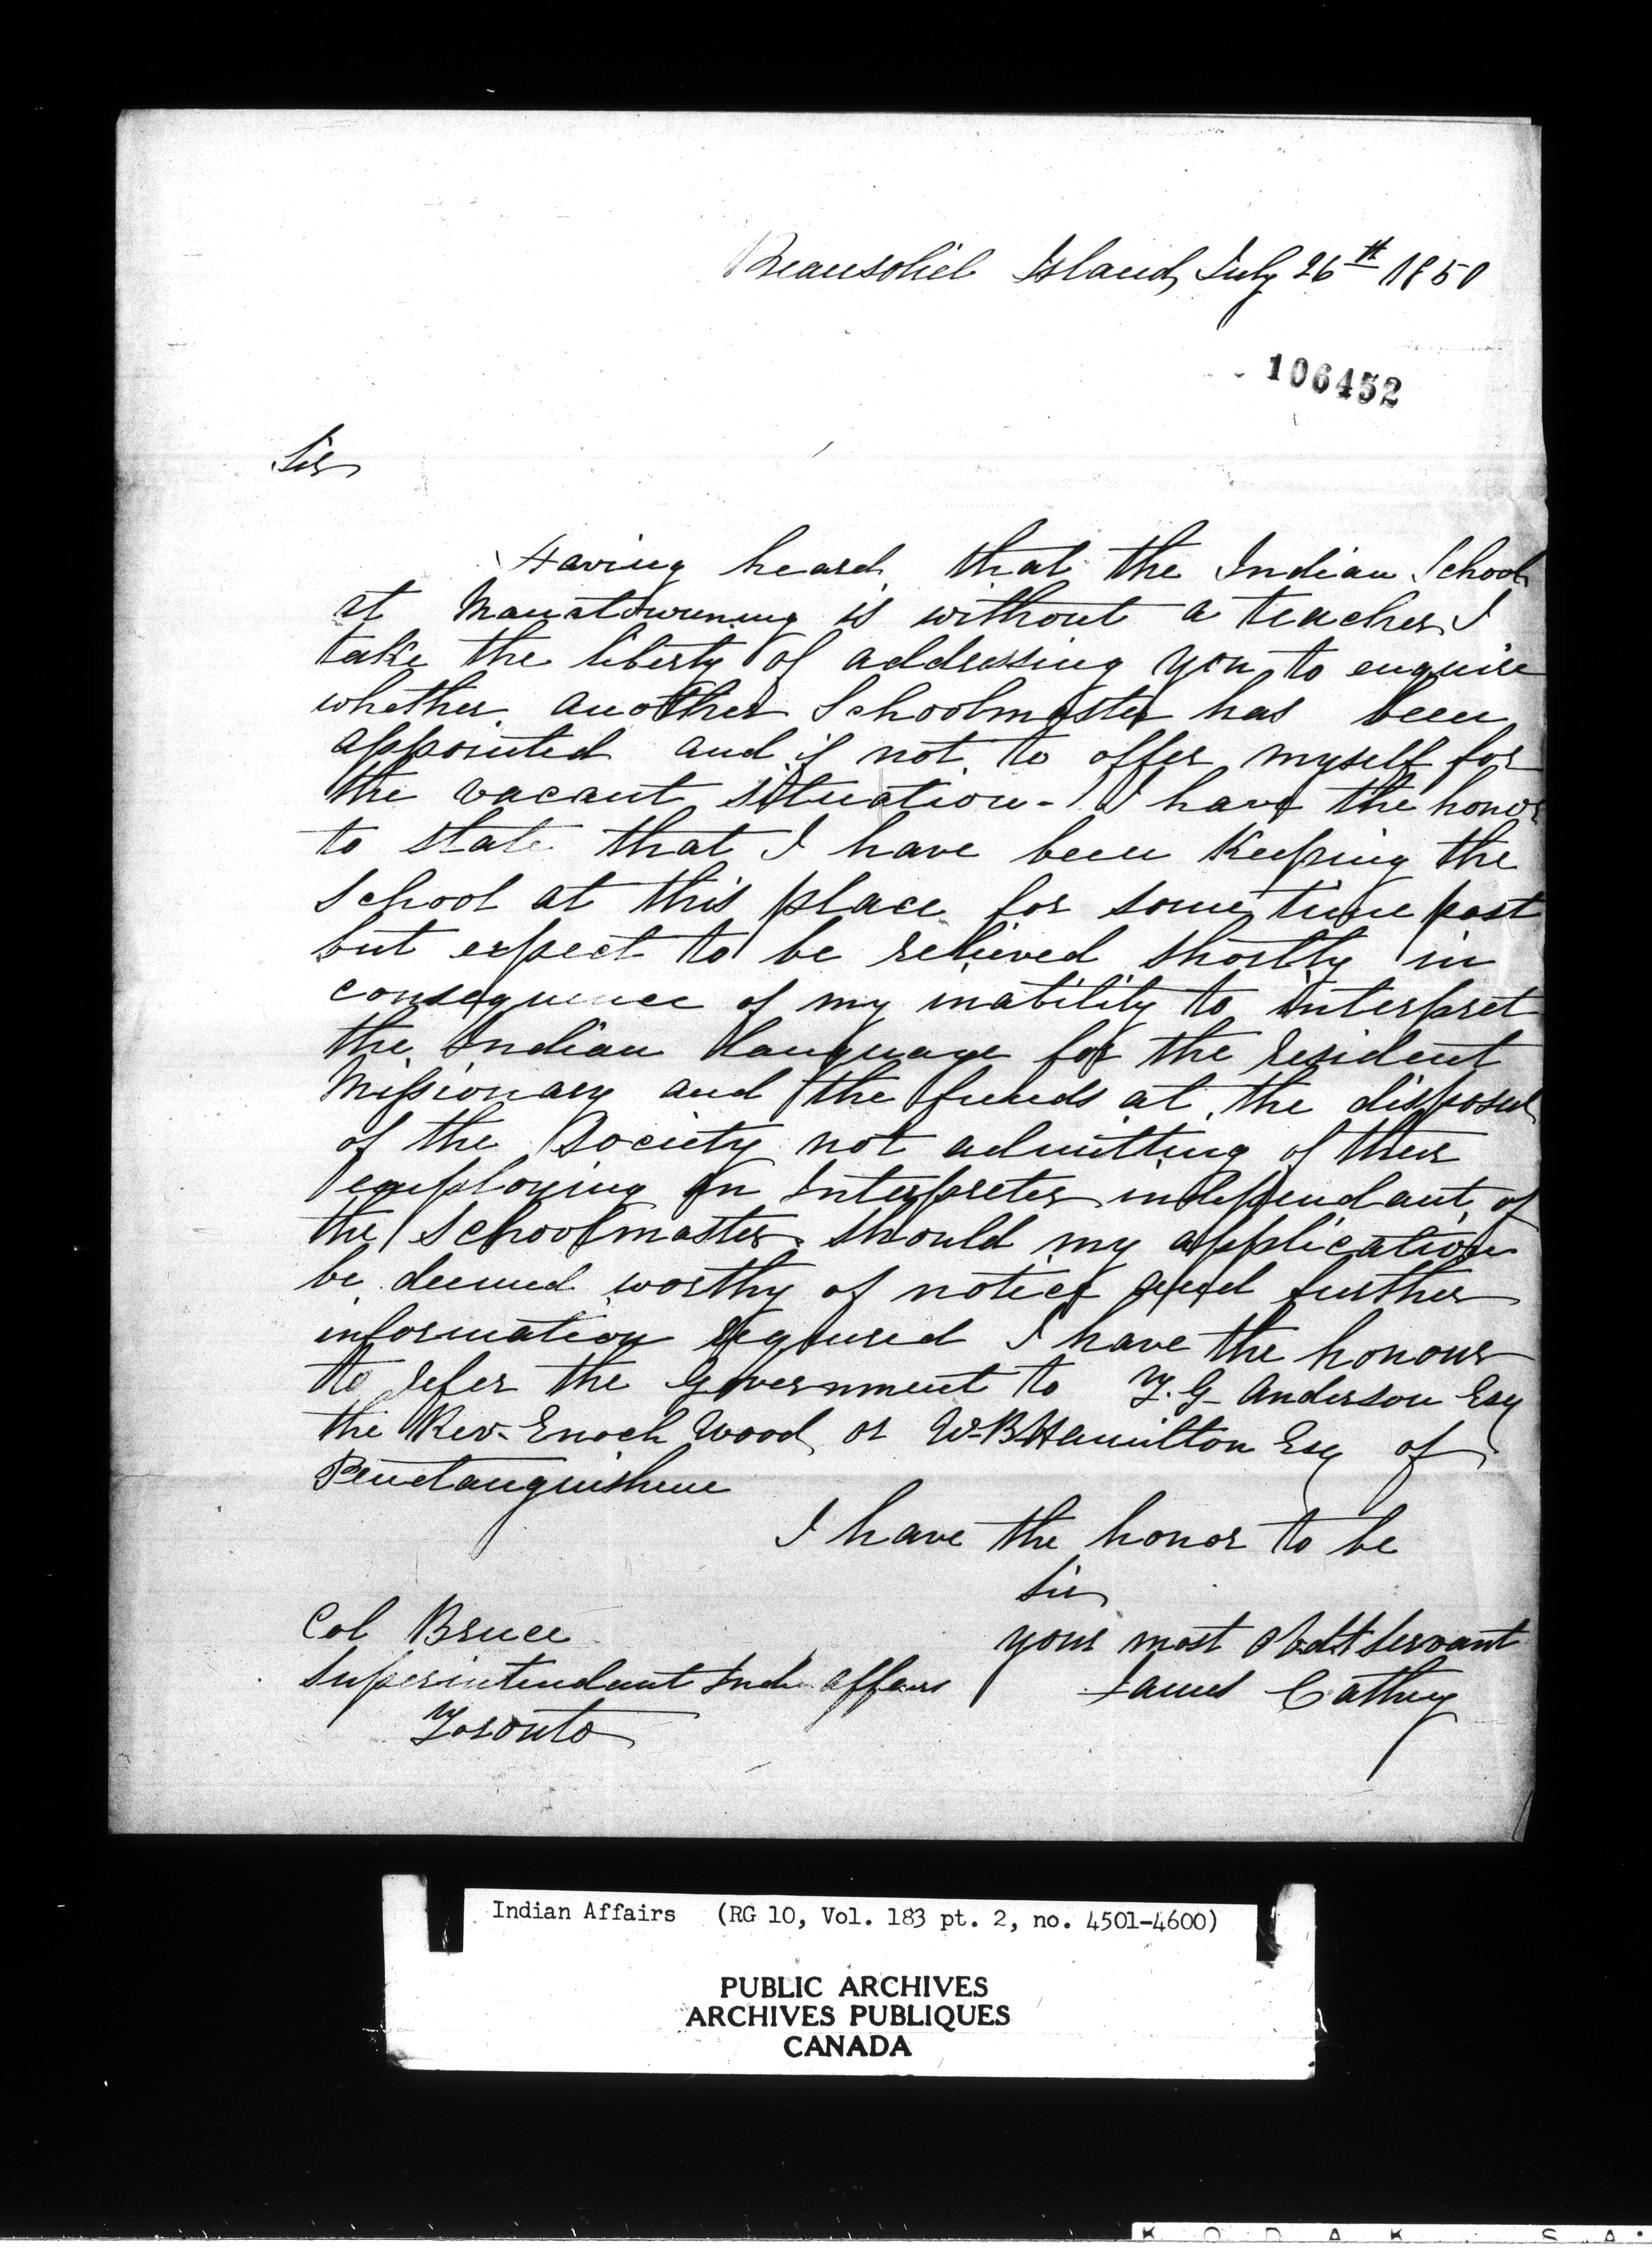 Beausoliel Island July 26th 1850
106452
Sir
Having heard that the Indian School
at Manatowening is without a teacher I
take the liberty of addressing you to enquire
whether another Schoolmaster has been
appointed and if not to offer myself for
the vacant situation - I have the honor
to state that I have been Keeping the
School at this place for some time past
but expect to be relieved shortly in
consequence of my inability to interpret
the Indian Language for the resident
Missionary and the funds at the disposal
of the Society not admitting of their
employing an Interpreter independant of
the Schoolmaster. Should my application
be deemed worthy of notice and further
information required I have the honour
to refer the Government to T. G. Anderson Esq
the Rev. Enoch Wood or W. B Hamilton Esq of
Penetanguishene
I have the honor to be
Sir
your most Obdt servant
James Cathey
Col Bruce
Superintendant Ind. affairs
Toronto
Indian Affairs (RG 10, Vol. 183 pt. 2, no. 4501-4600)
PUBLIC ARCHIVES
ARCHIVES PUBLIQUES
CANADA
K O D A K S A